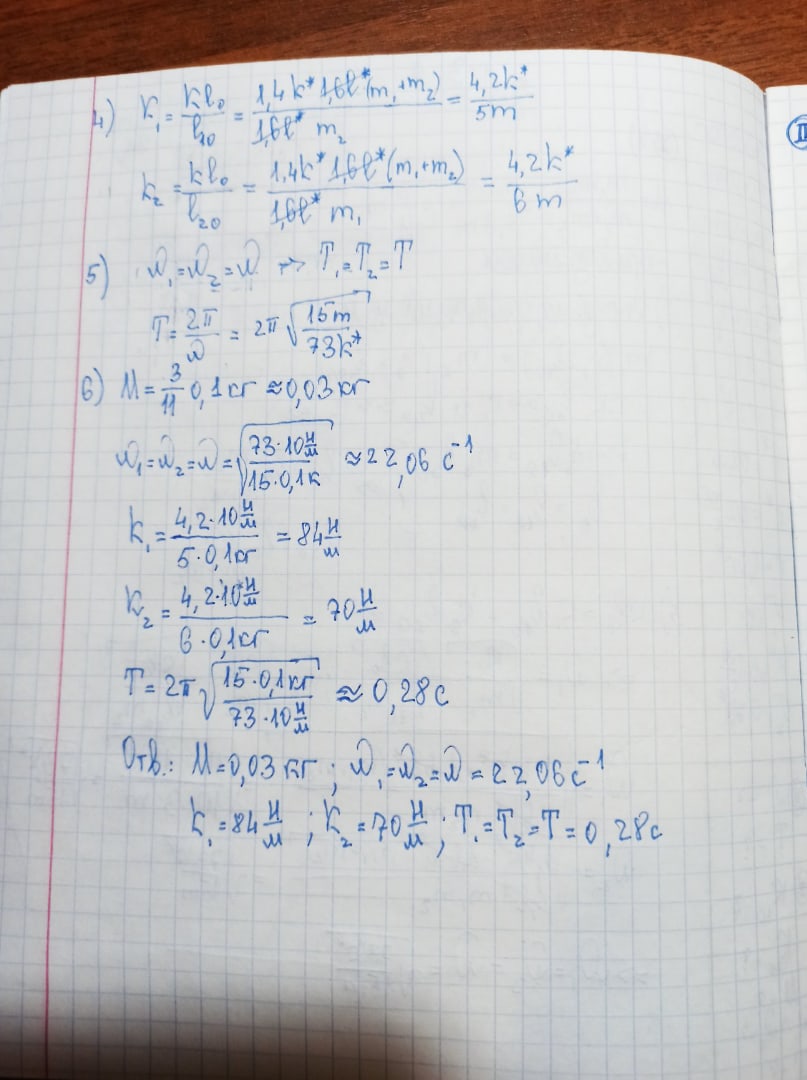 4) K₁ = kl₀/l₁₀ = 1,4k* 1,6l*(m₁+m₂)/1,6l* m₂ = 4,2k*/5m
k₂ = kl₀/l₂₀ = 1,4k* 1,6l*(m₁+m₂)/1,6l* m₁ = 4,2k*/6m
5) ω₁=ω₂=ω → T₁=T₂=T
T = 2π/ω = 2π√(15m/73k*)
6) M = 3/11 0,1кг ≈ 0,03кг
ω₁=ω₂=ω = √(73·10 Н/м / 15·0,1к) ≈ 22,06 с⁻¹
k₁ = 4,2·10 Н/м / 5·0,1кг = 84 Н/м
K₂ = 4,2·10 Н/м / 6·0,1кг = 70 Н/м
T = 2π√(15·0,1кг / 73·10 Н/м) ≈ 0,28с
Отв.: M=0,03кг; ω₁=ω₂=ω=22,06с⁻¹
K₁=84 Н/м; K₂=70 Н/м; T₁=T₂=T=0,28с
II